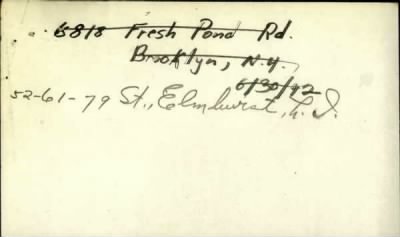 5818 Fresh Pond Rd.
Brooklyn, N.Y.
6/30/42
52-61-79 St., Elmhurst, L.I.